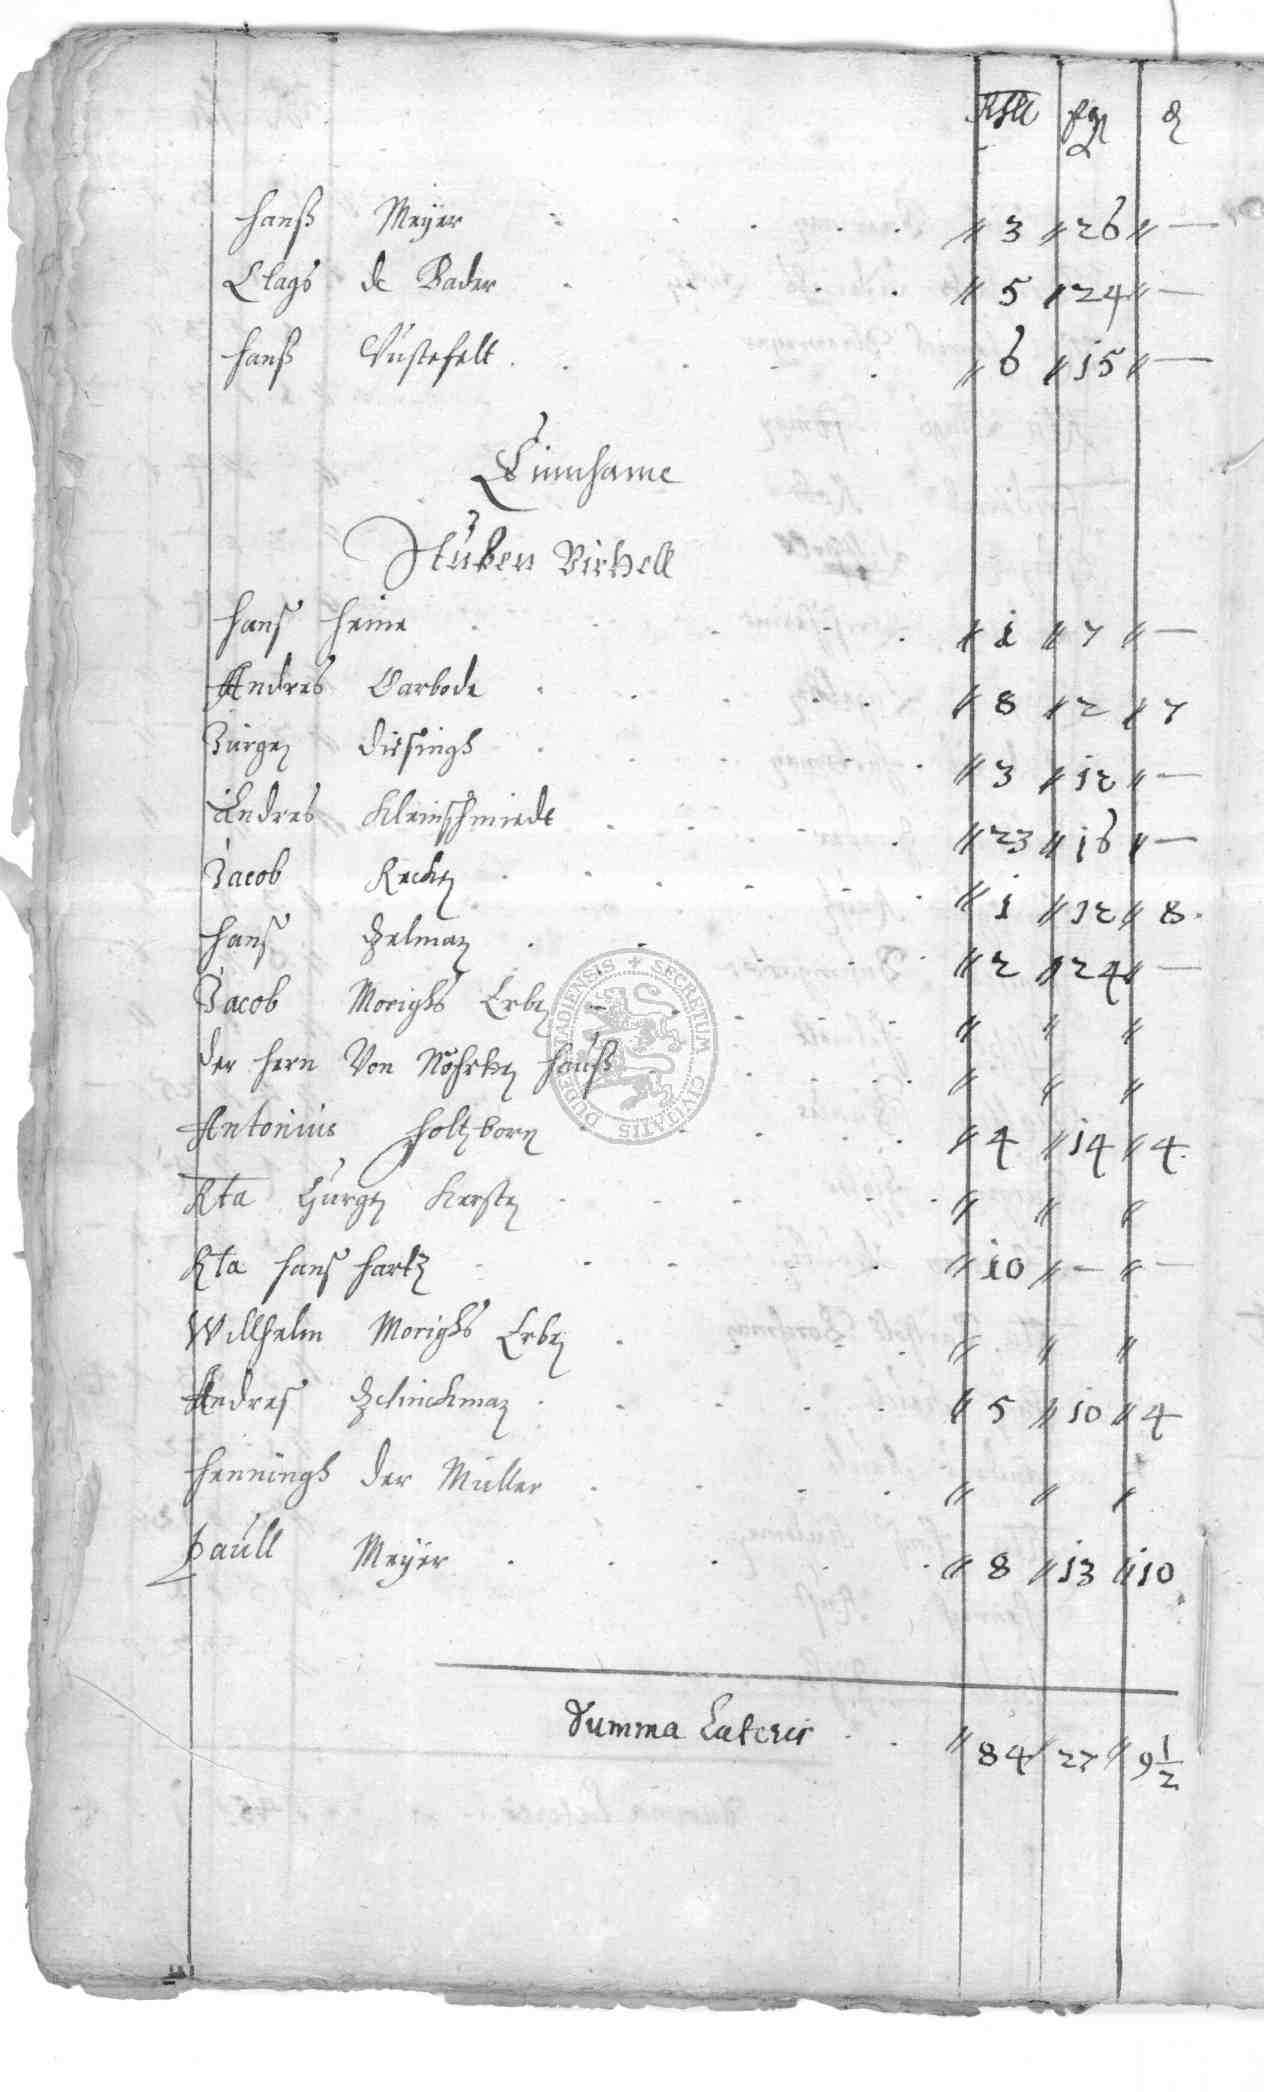 Rthl ßgl ₰
Hanß Meÿer // 3 // 26 // —
Clags de Bader // 5 // 24 // —
Hanß Wüstefelt // 6 // 15 // —
Einnhame
Stüben Virtzell
Hanß Heine // 1 // 7 // —
Andres Garbode // 8 // 2 // 7
Jürgen Diesingh // 3 // 12 // —
Andres Kleinschmiedt // 23 // 16 // —
Jacob Recken // 1 // 12 // 8
Hanß Helman // 2 // 24 // —
Jacob Morighs Erben // // //
Der Hern Von Nöhrten Hauß // // //
Antonius Holtzborn // 4 // 14 // 4
Rta Hürgen Kersten // // //
Rta Hanß Hartz // 10 // — // —
Willhelm Morighs Erben // // //
Andres Schinckman // 5 // 10 // 4
Henningh der Müller // // //
Paüll Meÿer // 8 // 13 // 10
Summa Lateris // 84 // 27 // 9 1/2
SECRETUM CIVITATIS DUDERSTADIENSIS